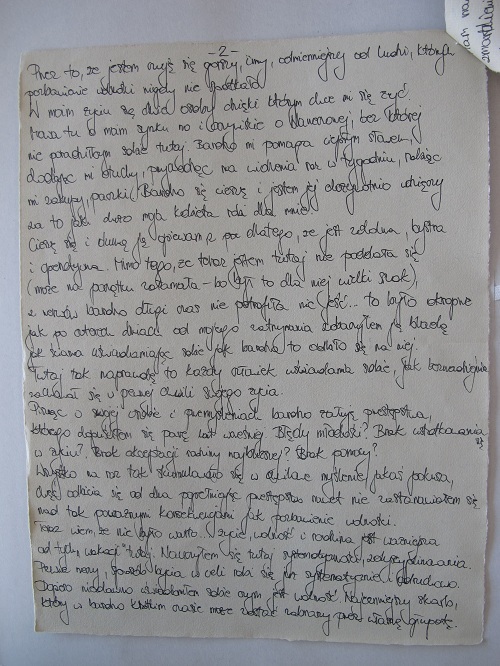 - 2 -
Przez to, że jestem czuję się gorszy, inny, odmienniejszy od ludzi, których
pozbawienie wolności nigdy nie spotkało
W moim życiu są dwie osoby dzięki którym chce mi się żyć.
Mowa tu o mam synku no i oczywiście o
nie poradziłbym sobie tutaj. Bardzo mi pomaga ciepłym słowem,
dodając mi otuchy, przyjeżdżając na widzenia raz w tygodniu, robiąc
mi zakupy, paczki. Bardzo się cieszę i jestem jej dozgonnie wdzięczny
za to jak dużo moja kobieta robi dla mnie.
Cieszę się i dumą ją opiewam z za dlatego, że jest zdolna, bystra
i operatywna. Mimo tego, że teraz jestem tutaj nie poddała się
(może na początku załamała - bo był to dla niej wielki szok),
bardzo długi czas nie potrafiła nic jeść... to było okropne
jak po czterech dniach od mojego zatrzymania zobaczyłem ją bladą
jak ściana uświadamiając sobie jak bardzo to odbiło się na niej.
Tutaj tak naprawdę to każdy człowiek uświadamia sobie, jak beznadziejnie
zachował się w pewnej chwili swojego życia.
Pisząc o swojej osobie i przemyśleniach bardzo żałuję przestępstwa,
którego dopuściłem się parę lat wcześniej. Błędy młodości? Brak
w życiu? Brak akceptacji rodziny najbliższej? Brak pomocy?
Wszystko na raz tak skumulowało się w myślenie, jakaś pokusa,
chęć odbicia się od dna popełniając przestępstwo nawet nie zastanawiałem się
nad tak poważnymi konsekwencjami jak pozbawienie wolności.
Teraz wiem, że nie było warto... życie, wolność i rodzina jest ważniejsza
od tych "wakacji" tutaj. Nauczyłem się tutaj systematyczności, zdyscyplinowania.
Pewne rzeczy, sposób bycia w celi robi się systematycznie i
Dopiero niedawno uświadomiłem sobie czym jest wolność. Najcenniejszy skarb,
który w bardzo krótkim czasie może zostać zabrany przez własną głupotę.